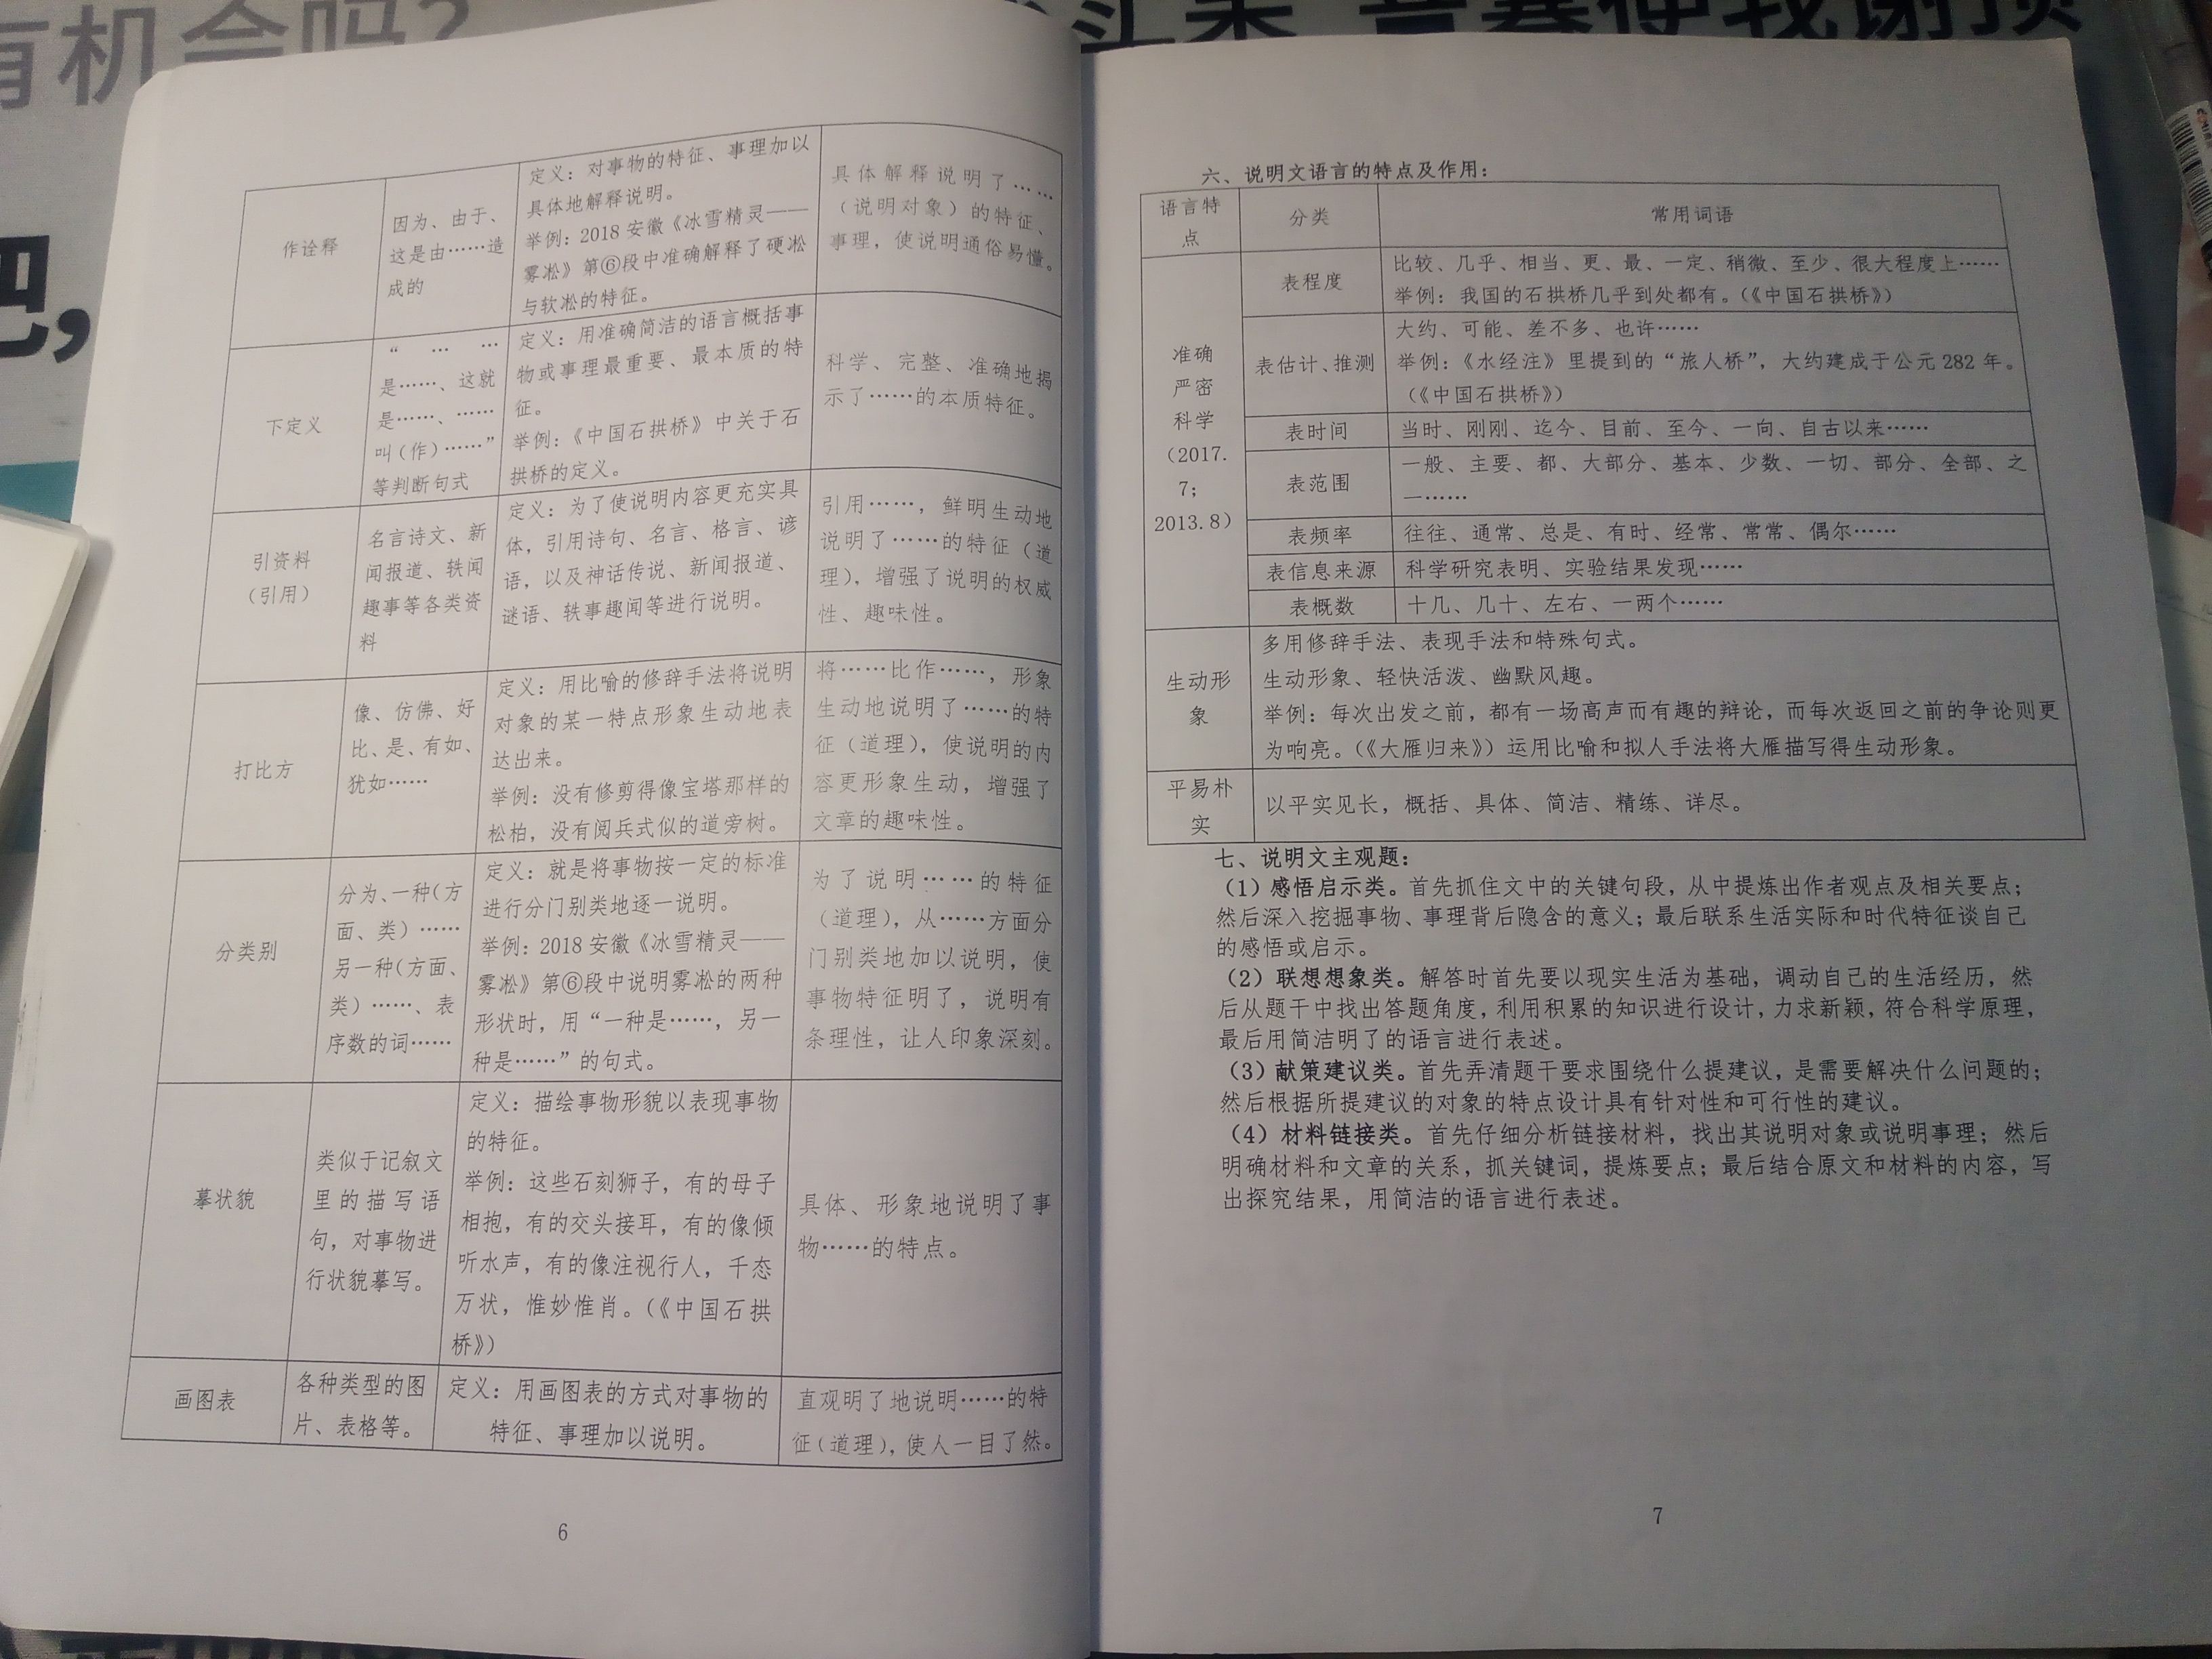 有机会吗?
吧,
作诠释
因为、由于、
这是由……造
成的
定义：对事物的特征、事理加以
具体地解释说明。
举例：2018 安徽《冰雪精灵——
雾凇》第⑥段中准确解释了硬凇
与软凇的特征。
具体解释说明了……
（说明对象）的特征、
事理，使说明通俗易懂。
下定义
“ … …
是……、这就
是……、……
叫（作）……”
等判断句式
定义：用准确简洁的语言概括事
物或事理最重要、最本质的特
征。
举例：《中国石拱桥》中关于石
拱桥的定义。
科学、完整、准确地揭
示了……的本质特征。
引资料
（引用）
名言诗文、新
闻报道、轶闻
趣事等各类资
料
定义：为了使说明内容更充实具
体，引用诗句、名言、格言、谚
语，以及神话传说、新闻报道、
谜语、轶事趣闻等进行说明。
引用……，鲜明生动地
说明了……的特征（道
理），增强了说明的权威
性、趣味性。
打比方
像、仿佛、好
比、是、有如、
犹如……
定义：用比喻的修辞手法将说明
对象的某一特点形象生动地表
达出来。
举例：没有修剪得像宝塔那样的
松柏，没有阅兵式似的道旁树。
将……比作……，形象
生动地说明了……的特
征（道理），使说明的内
容更形象生动，增强了
文章的趣味性。
分类别
分为、一种（方
面、类）……
另一种（方面、
类）……、表
序数的词……
定义：就是将事物按一定的标准
进行分门别类地逐一说明。
举例：2018 安徽《冰雪精灵——
雾凇》第⑥段中说明雾凇的两种
形状时，用“一种是……，另一
种是……”的句式。
为了说明……的特征
（道理），从……方面分
门别类地加以说明，使
事物特征明了，说明有
条理性，让人印象深刻。
摹状貌
类似于记叙文
里的描写语
句，对事物进
行状貌摹写。
定义：描绘事物形貌以表现事物
的特征。
举例：这些石刻狮子，有的母子
相抱，有的交头接耳，有的像倾
听水声，有的像注视行人，千态
万状，惟妙惟肖。（《中国石拱
桥》）
具体、形象地说明了事
物……的特点。
画图表
各种类型的图
片、表格等。
定义：用画图表的方式对事物的
特征、事理加以说明。
直观明了地说明……的特
征（道理），使人一目了然。
6
六、说明文语言的特点及作用：
语言特
点
分类
常用词语
准确
严密
科学
（2017.
7；
2013.8）
表程度
比较、几乎、相当、更、最、一定、稍微、至少、很大程度上……
举例：我国的石拱桥几乎到处都有。（《中国石拱桥》）
表估计、推测
大约、可能、差不多、也许……
举例：《水经注》里提到的“旅人桥”，大约建成于公元 282 年。
（《中国石拱桥》）
表时间
当时、刚刚、迄今、目前、至今、一向、自古以来……
表范围
一般、主要、都、大部分、基本、少数、一切、部分、全部、之
一……
表频率
往往、通常、总是、有时、经常、常常、偶尔……
表信息来源
科学研究表明、实验结果发现……
表概数
十几、几十、左右、一两个……
生动形
象
多用修辞手法、表现手法和特殊句式。
生动形象、轻快活泼、幽默风趣。
举例：每次出发之前，都有一场高声而有趣的辩论，而每次返回之前的争论则更
为响亮。（《大雁归来》）运用比喻和拟人手法将大雁描写得生动形象。
平易朴
实
以平实见长，概括、具体、简洁、精练、详尽。
七、说明文主观题：
（1）感悟启示类。首先抓住文中的关键句段，从中提炼出作者观点及相关要点；
然后深入挖掘事物、事理背后隐含的意义；最后联系生活实际和时代特征谈自己
的感悟或启示。
（2）联想想象类。解答时首先要以现实生活为基础，调动自己的生活经历，然
后从题干中找出答题角度，利用积累的知识进行设计，力求新颖，符合科学原理，
最后用简洁明了的语言进行表述。
（3）献策建议类。首先弄清题干要求围绕什么提建议，是需要解决什么问题的；
然后根据所提建议的对象的特点设计具有针对性和可行性的建议。
（4）材料链接类。首先仔细分析链接材料，找出其说明对象或说明事理；然后
明确材料和文章的关系，抓关键词，提炼要点；最后结合原文和材料的内容，写
出探究结果，用简洁的语言进行表述。
7